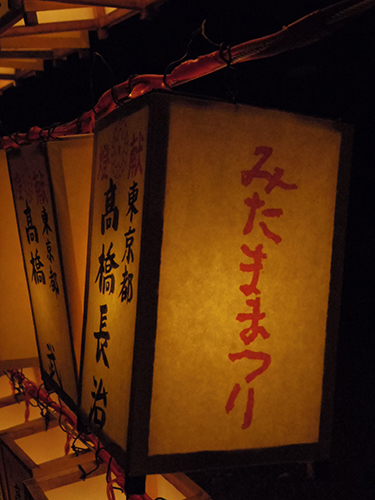 みたままつり
献燈
東京都
高橋長治
献
東京都
高橋